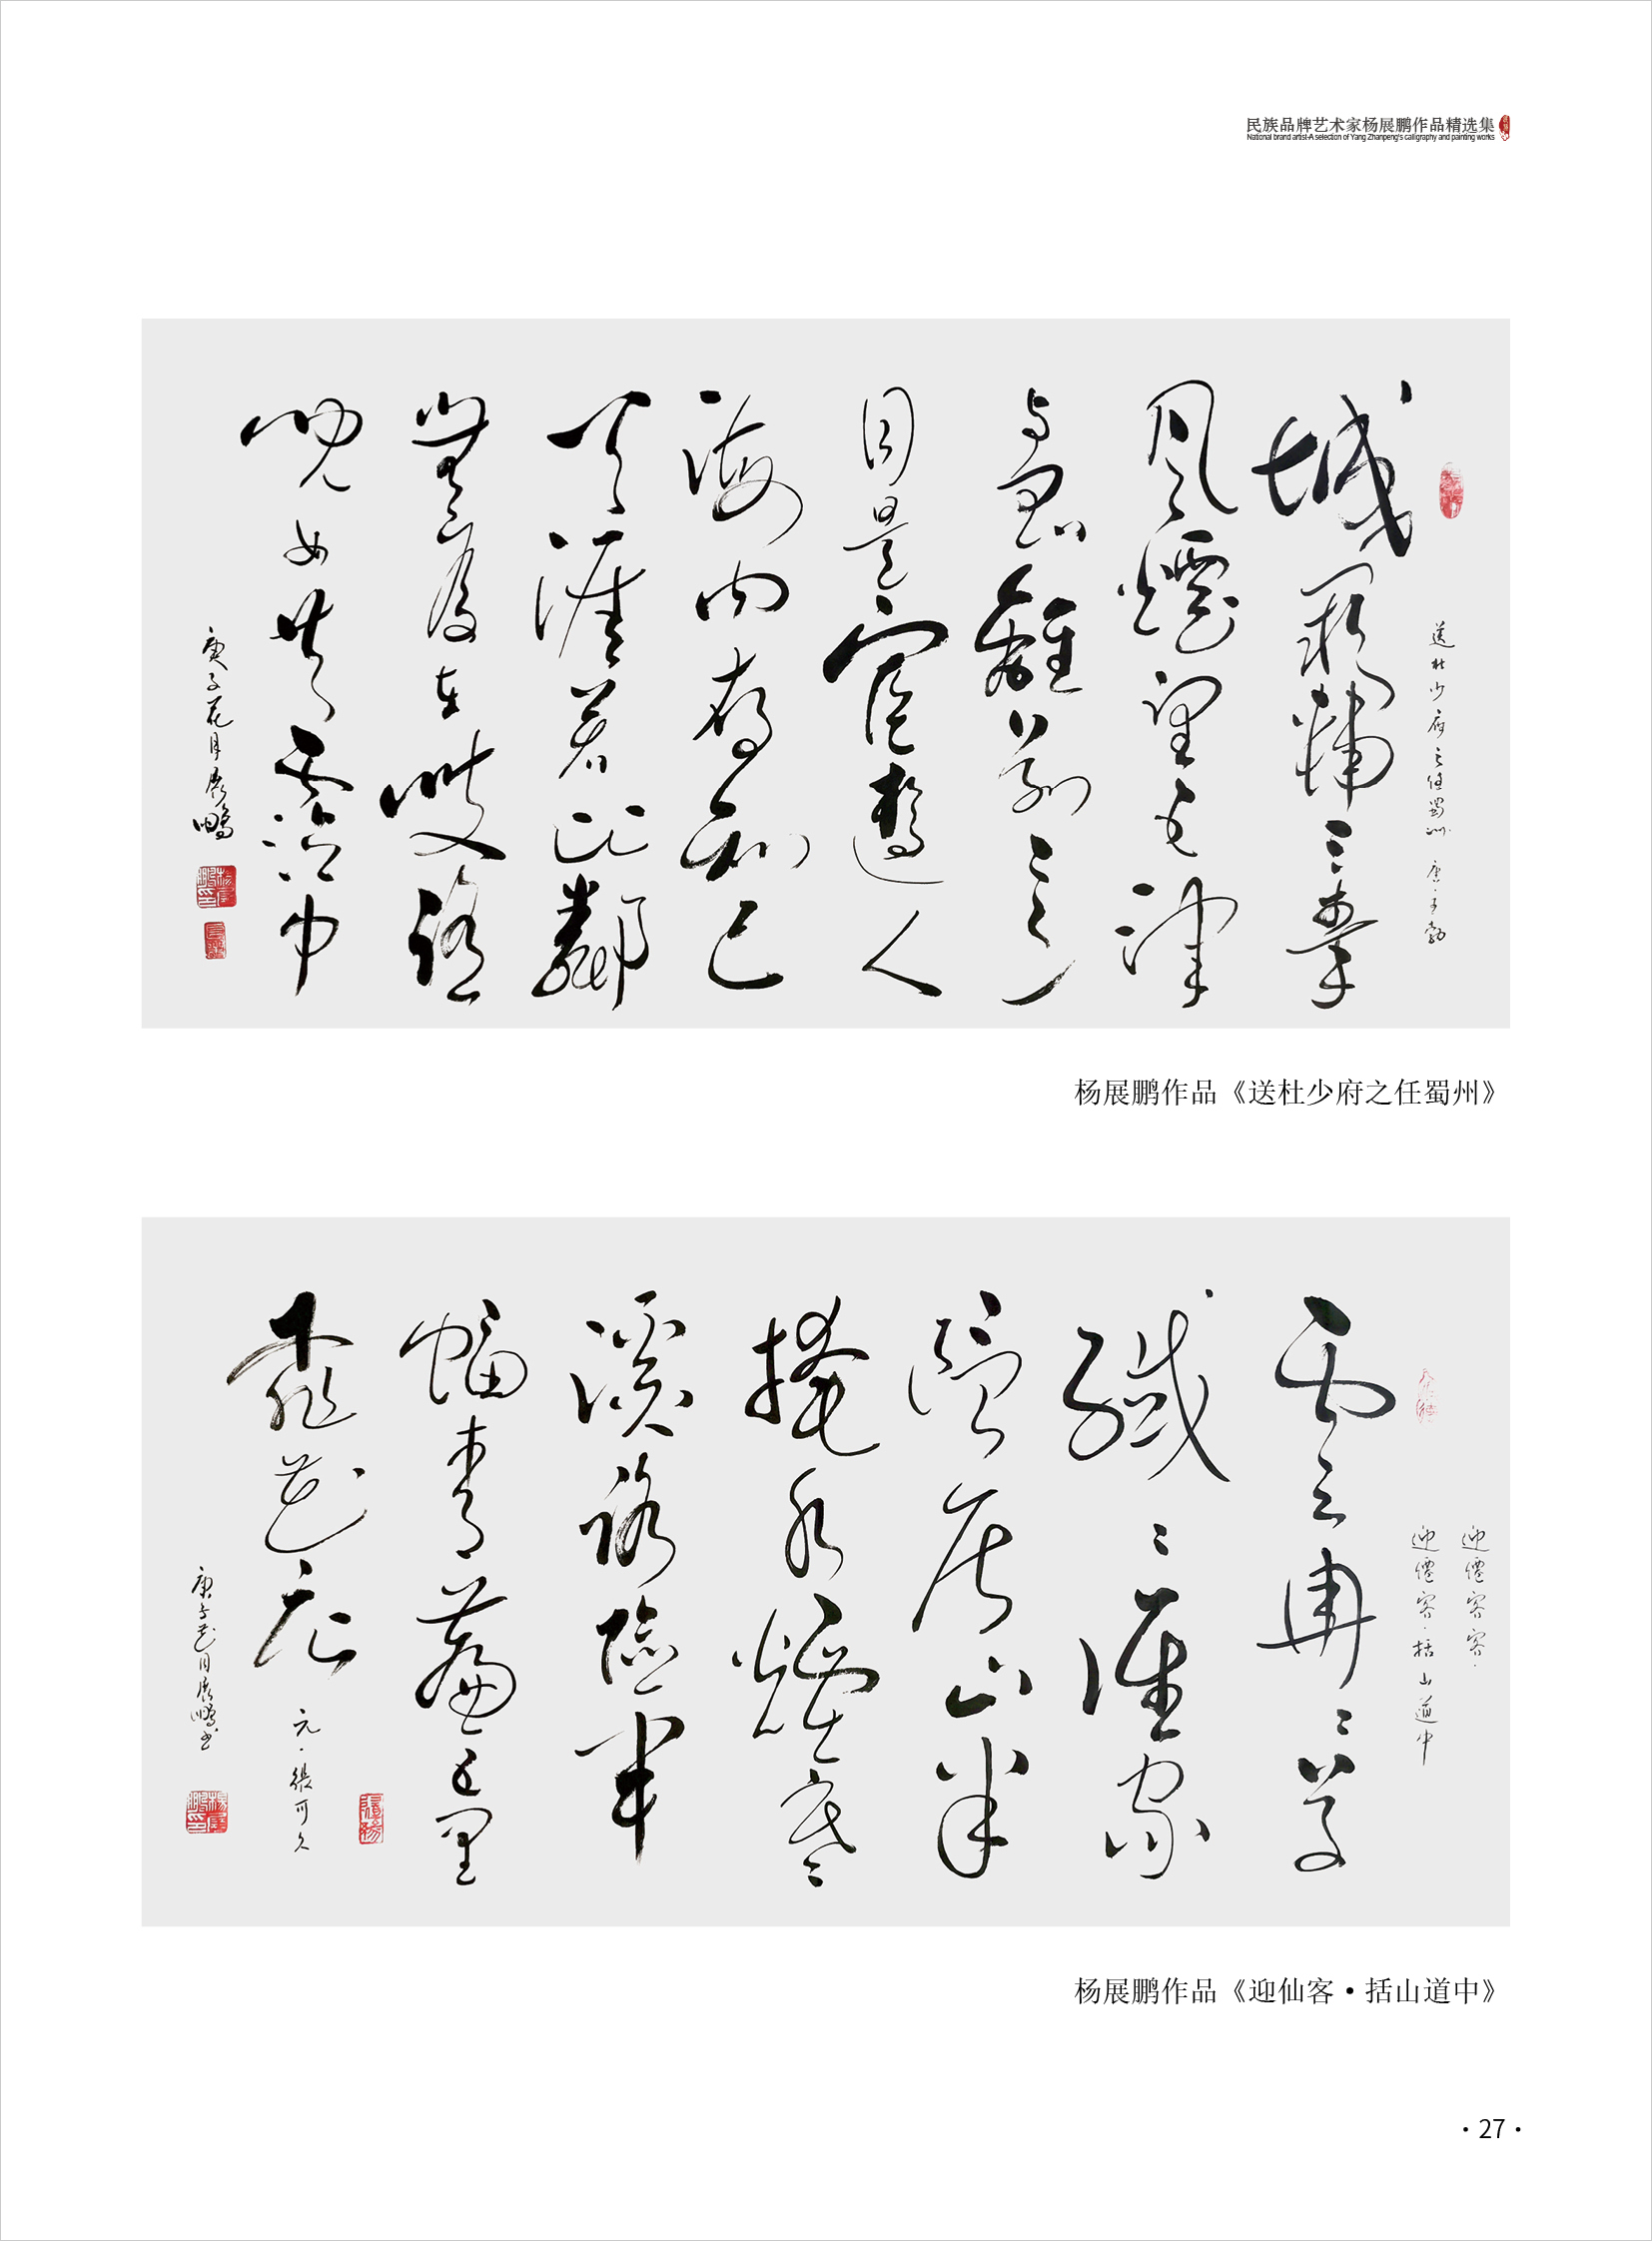 民族品牌艺术家杨展鹏作品精选集
National brand artist-A selection of Yang Zhanpeng's calligraphy and painting works
送杜少府之任蜀州 唐·王勃
城闕輔三秦
風煙望五津
与君離別意
同是宦遊人
海内存知己
天涯若比鄰
無為在岐路
兒女共霑巾
庚子花月展鵬
杨展鹏作品《送杜少府之任蜀州》
迎僊客客·
迎僊客·括山道中
雲冉〻草
纖〻誰家
隱居山半
掩水煙寒
溪路險半
幅青簾五里
桃花店
元·張可久
庚子花月展鵬书
杨展鹏作品《迎仙客·括山道中》
·27·